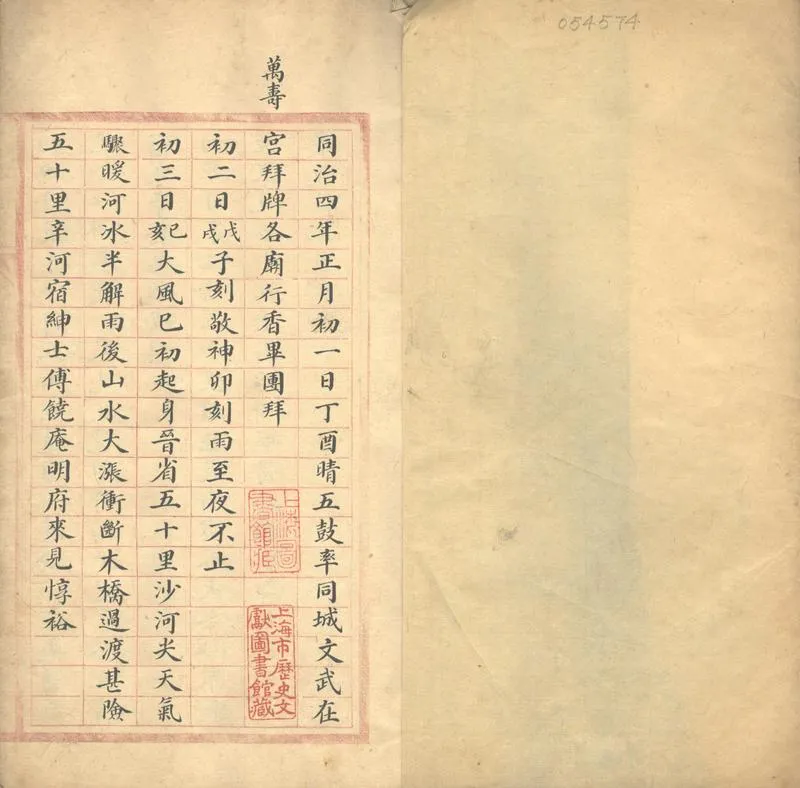 054574
同治四年正月初一日丁酉晴五鼓率同城文武在
萬壽
宮拜牌各廟行香畢團拜
初二日戊戌子刻敬神卯刻雨至夜不止
初三日己亥大風巳初起身晉省五十里沙河尖天氣
驟暖河冰半解雨後山水大漲衝斷木橋過渡甚險
五十里辛河宿紳士傅饒庵明府來見惇裕
上海圖
書館藏
上海市歷史文
獻圖書館藏